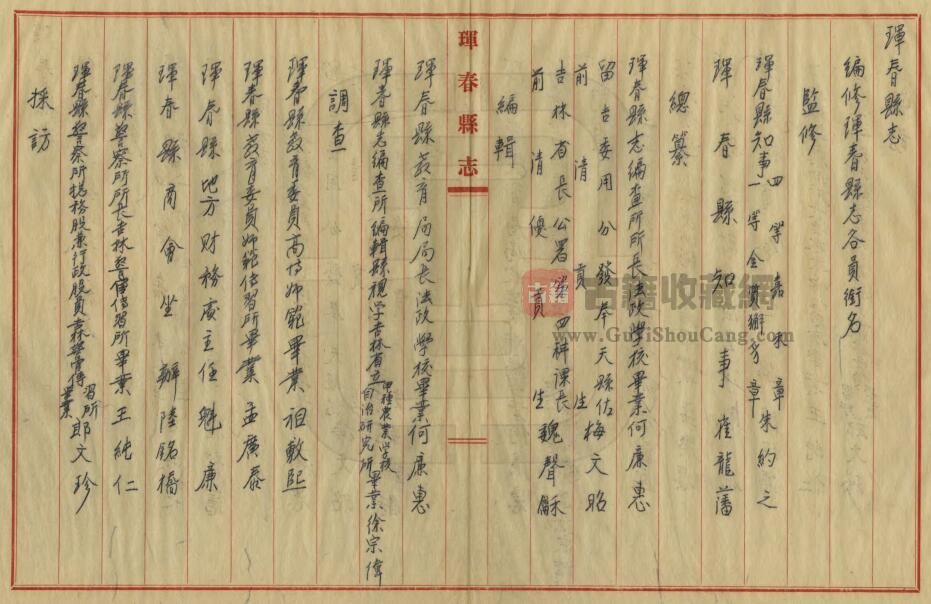 琿春縣志
編修琿春縣志各員銜名
監修
琿春縣知事四等嘉禾章一等金質獬豸章朱約之
琿春縣知事崔龍藩
總纂
琿春縣志編查所所長法政學校畢業何廉惠
留吉委用分發奉天縣佐前清貢生梅文昭
吉林省長公署第四科課長前清優貢生魏聲龢
編輯
琿春縣志
琿春縣教育局局長法政學校畢業何廉惠
琿春縣志編查所編輯縣視學吉林省立甲種農業學校自治研究所畢業徐宗偉
調查
琿春縣教育委員高等師範畢業祖敷熙
琿春縣教育委員師範傳習所畢業孟廣泰
琿春縣地方財務處主任魁廉
琿春縣商會坐辦陸銘橋
琿春縣警察所所長吉林警傳習所畢業王純仁
琿春縣警察所總務股兼行政股員吉林警傳習所畢業郎文珍
採訪
古籍收藏網
www.GuJiShouCang.com